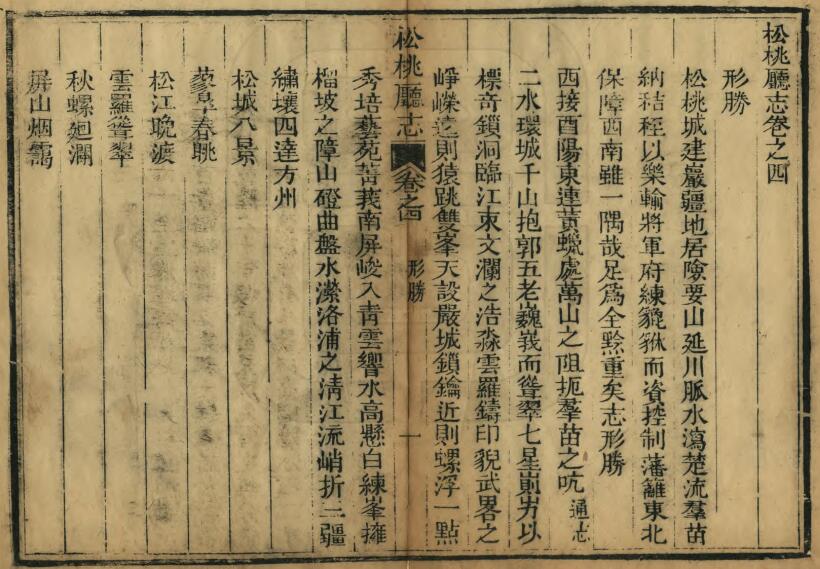 松桃廳志卷之四
形勝
松桃城建巖疆地居險要山延川脈水瀉楚流羣苗
納秸秷以樂輸將軍府練貔貅而資控制藩籬東北
保障西南雖一隅哉足爲全黔重矣志形勝
西接酉陽東連黃蠟處萬山之阻扼羣苗之吭通志
二水環城千山抱郭五老巍峩而聳翠七星崱屴以
標奇鎖洞臨江束文瀾之浩淼雲羅鑄印貌武畧之
崢嶸遠則猿跳雙峯天設嚴城鎖鑰近則螺浮一點
松桃廳志 卷之四 形勝 一
秀培藝苑菁莪南屏峻入青雲響水高懸白練峯擁
榴坡之障山磴曲盤水瀠洛浦之淸江流峭折三疆
繡壤四達方州
松城八景
蓼皋春眺
松江晚渡
雲羅聳翠
秋螺廻瀾
屏山烟靄